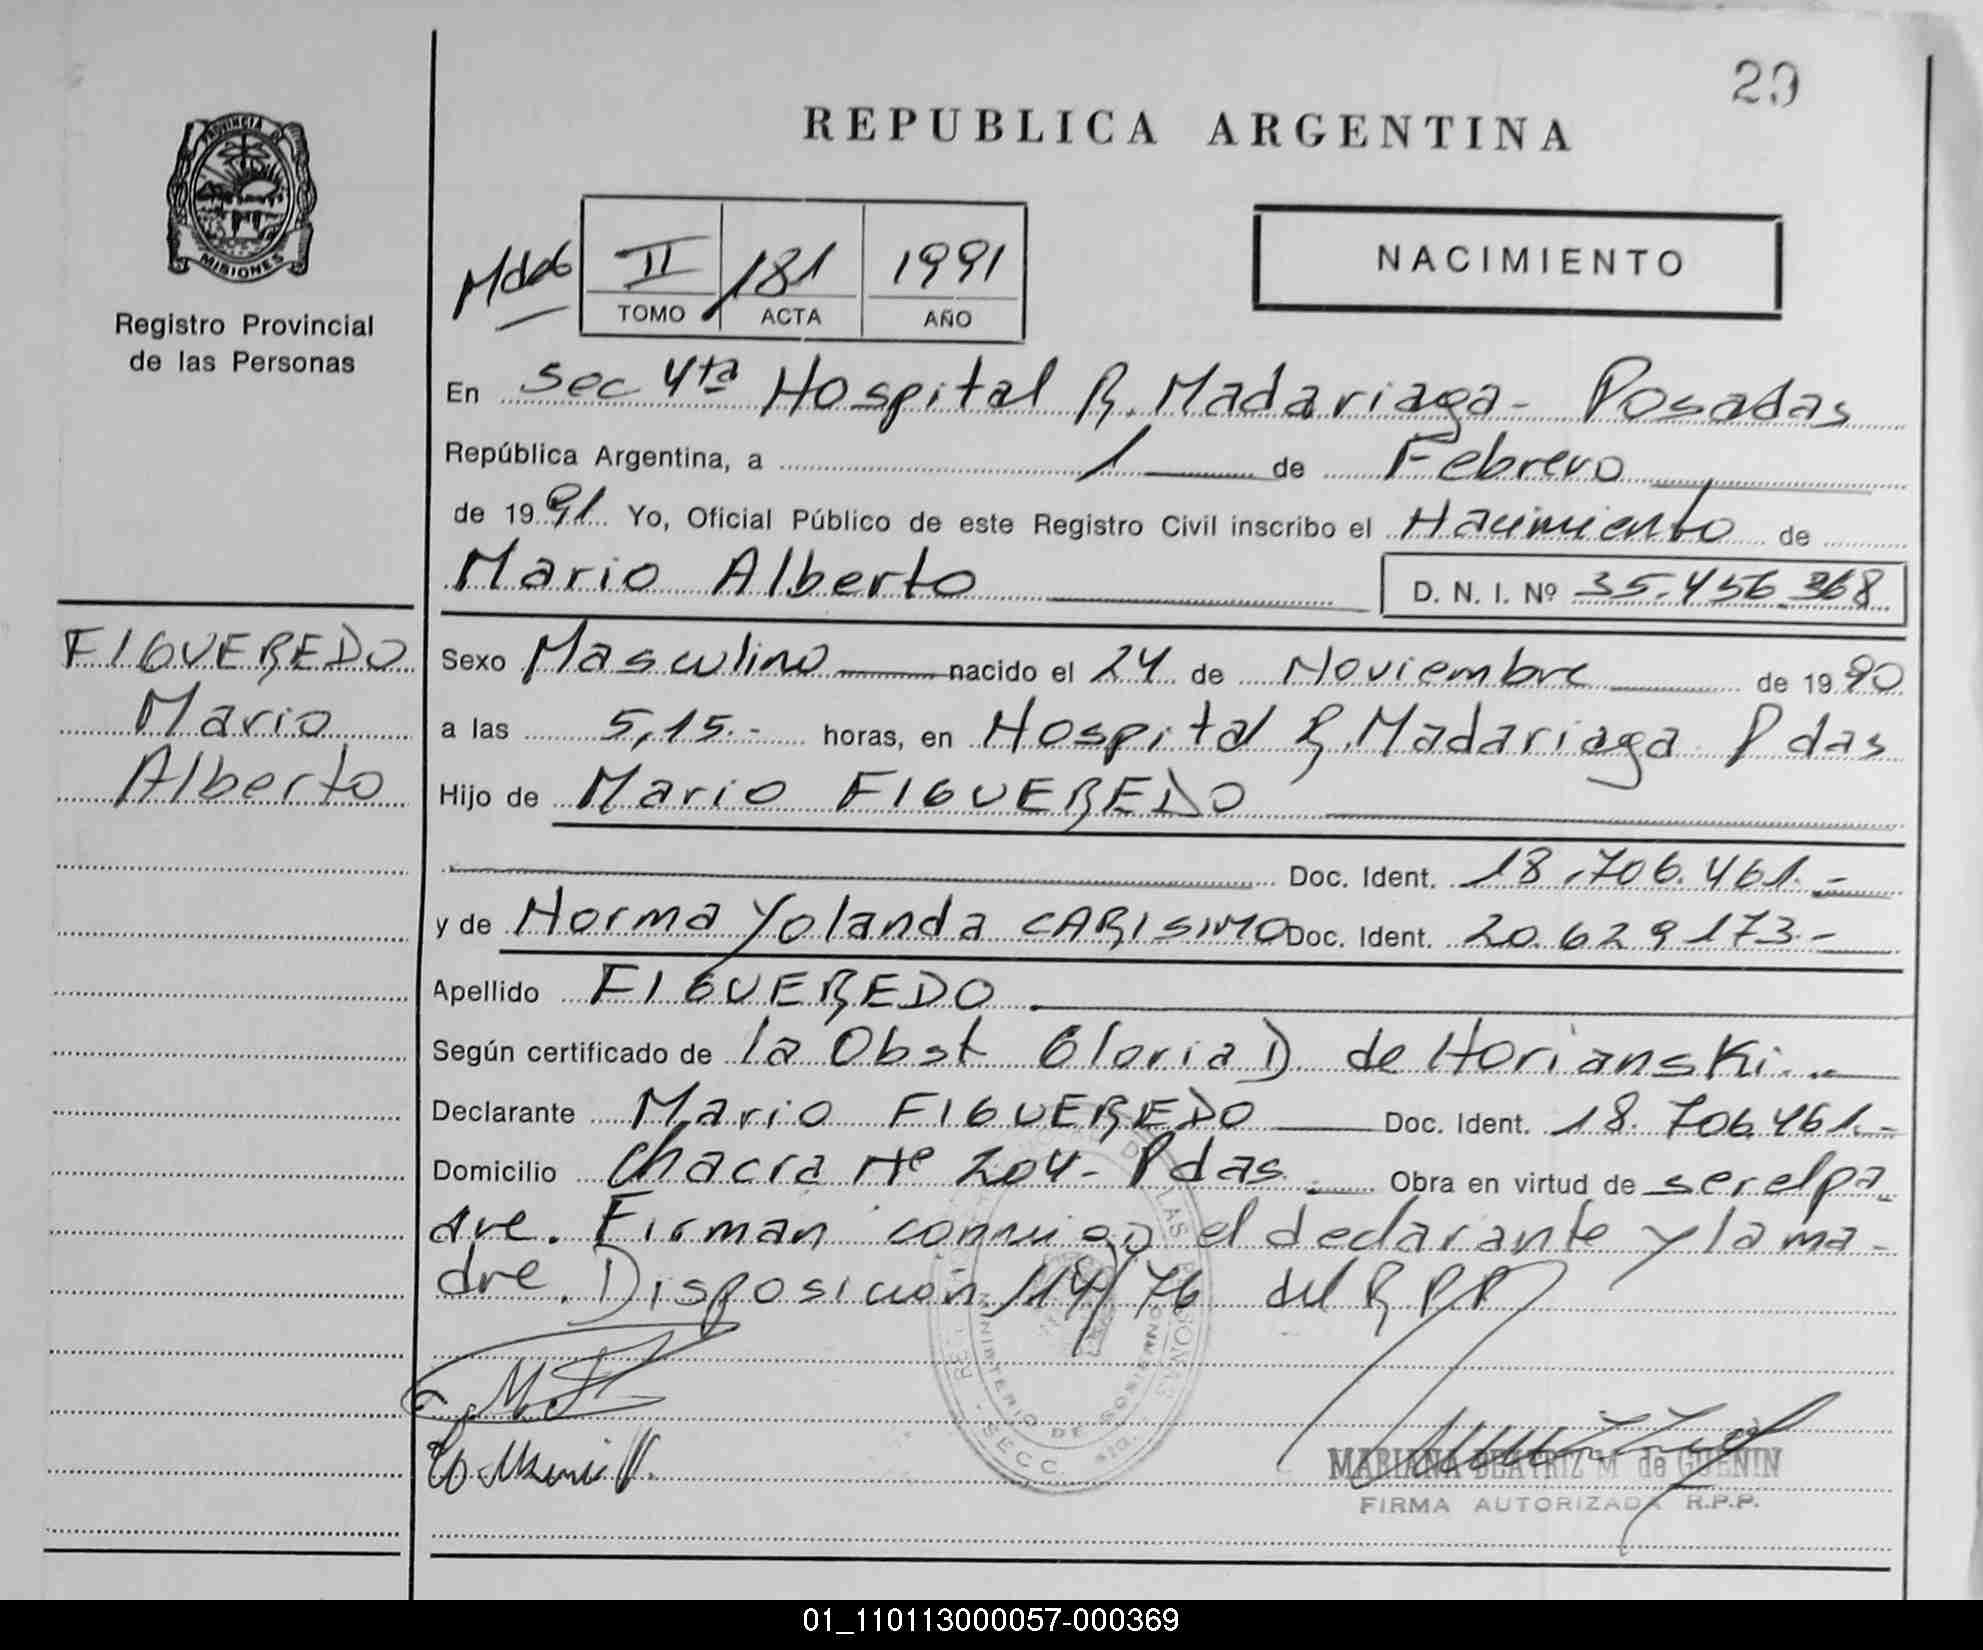 29
REPUBLICA ARGENTINA
PROVINCIA DE
MISIONES
Registro Provincial
de las Personas
II 181 1991
TOMO ACTA AÑO
NACIMIENTO
En Sec 4ta Hospital R. Madariaga - Posadas
República Argentina, a 1 de Febrero
de 1991 Yo, Oficial Público de este Registro Civil inscribo el Nacimiento de
Mario Alberto D. N. I. Nº 35.456.368
FIGUEREDO
Mario
Alberto
Sexo Masculino nacido el 24 de Noviembre de 1990
a las 5,15.- horas, en Hospital R. Madariaga Pdas
Hijo de Mario FIGUEREDO
Doc. Ident. 18.706.461.-
y de Norma Yolanda CARISIMO Doc. Ident. 20.629173.-
Apellido FIGUEREDO
Según certificado de la Obst Gloria D de Horianski.
Declarante Mario FIGUEREDO Doc. Ident. 18.706.461.-
Domicilio Chacra Nº 204 - Pdas. Obra en virtud de ser el pa
dre. Firman conmigo el declarante y la ma-
dre. Disposicion 114/76 del R P P
MINISTERIO DE GOBIERNO
SECC. 4ta.
MARIANA BEATRIZ M de GUENIN
FIRMA AUTORIZADA R.P.P.
01_110113000057-000369